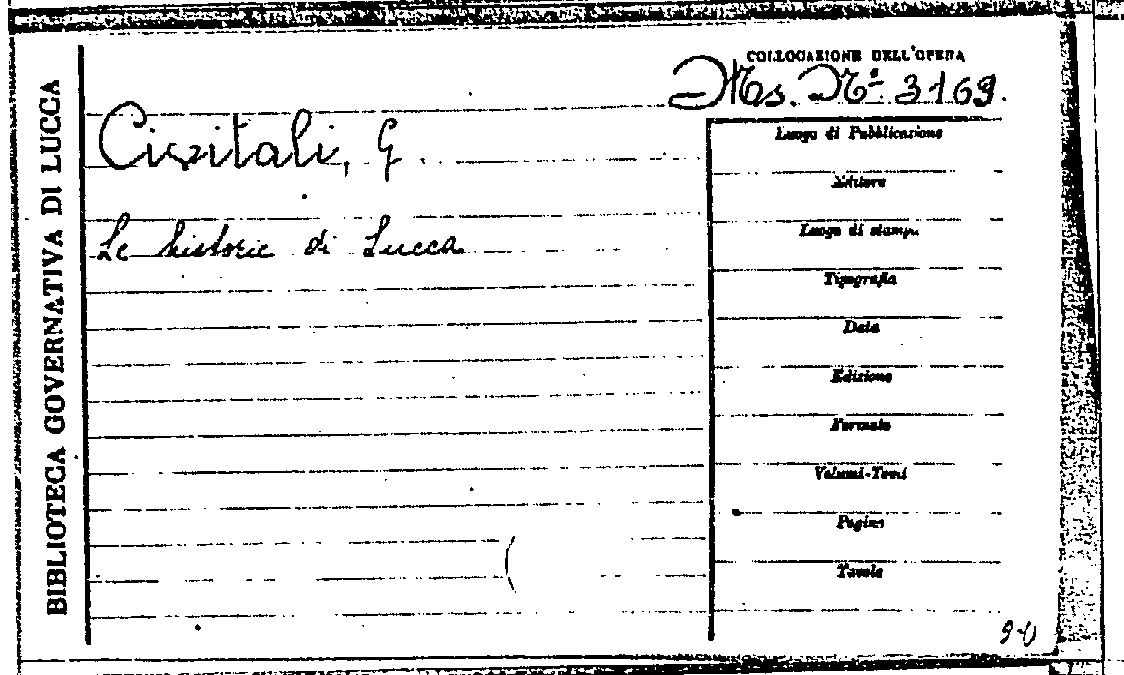 BIBLIOTECA GOVERNATIVA DI LUCCA
COLLOCAZIONE DELL'OPERA
Ms. N.º 3169.
Civitali, G.
Le historie di Lucca
Luogo di Pubblicazione
Editore
Luogo di stampa
Tipografia
Data
Edizione
Formato
Volumi-Tomi
Pagine
Tavole